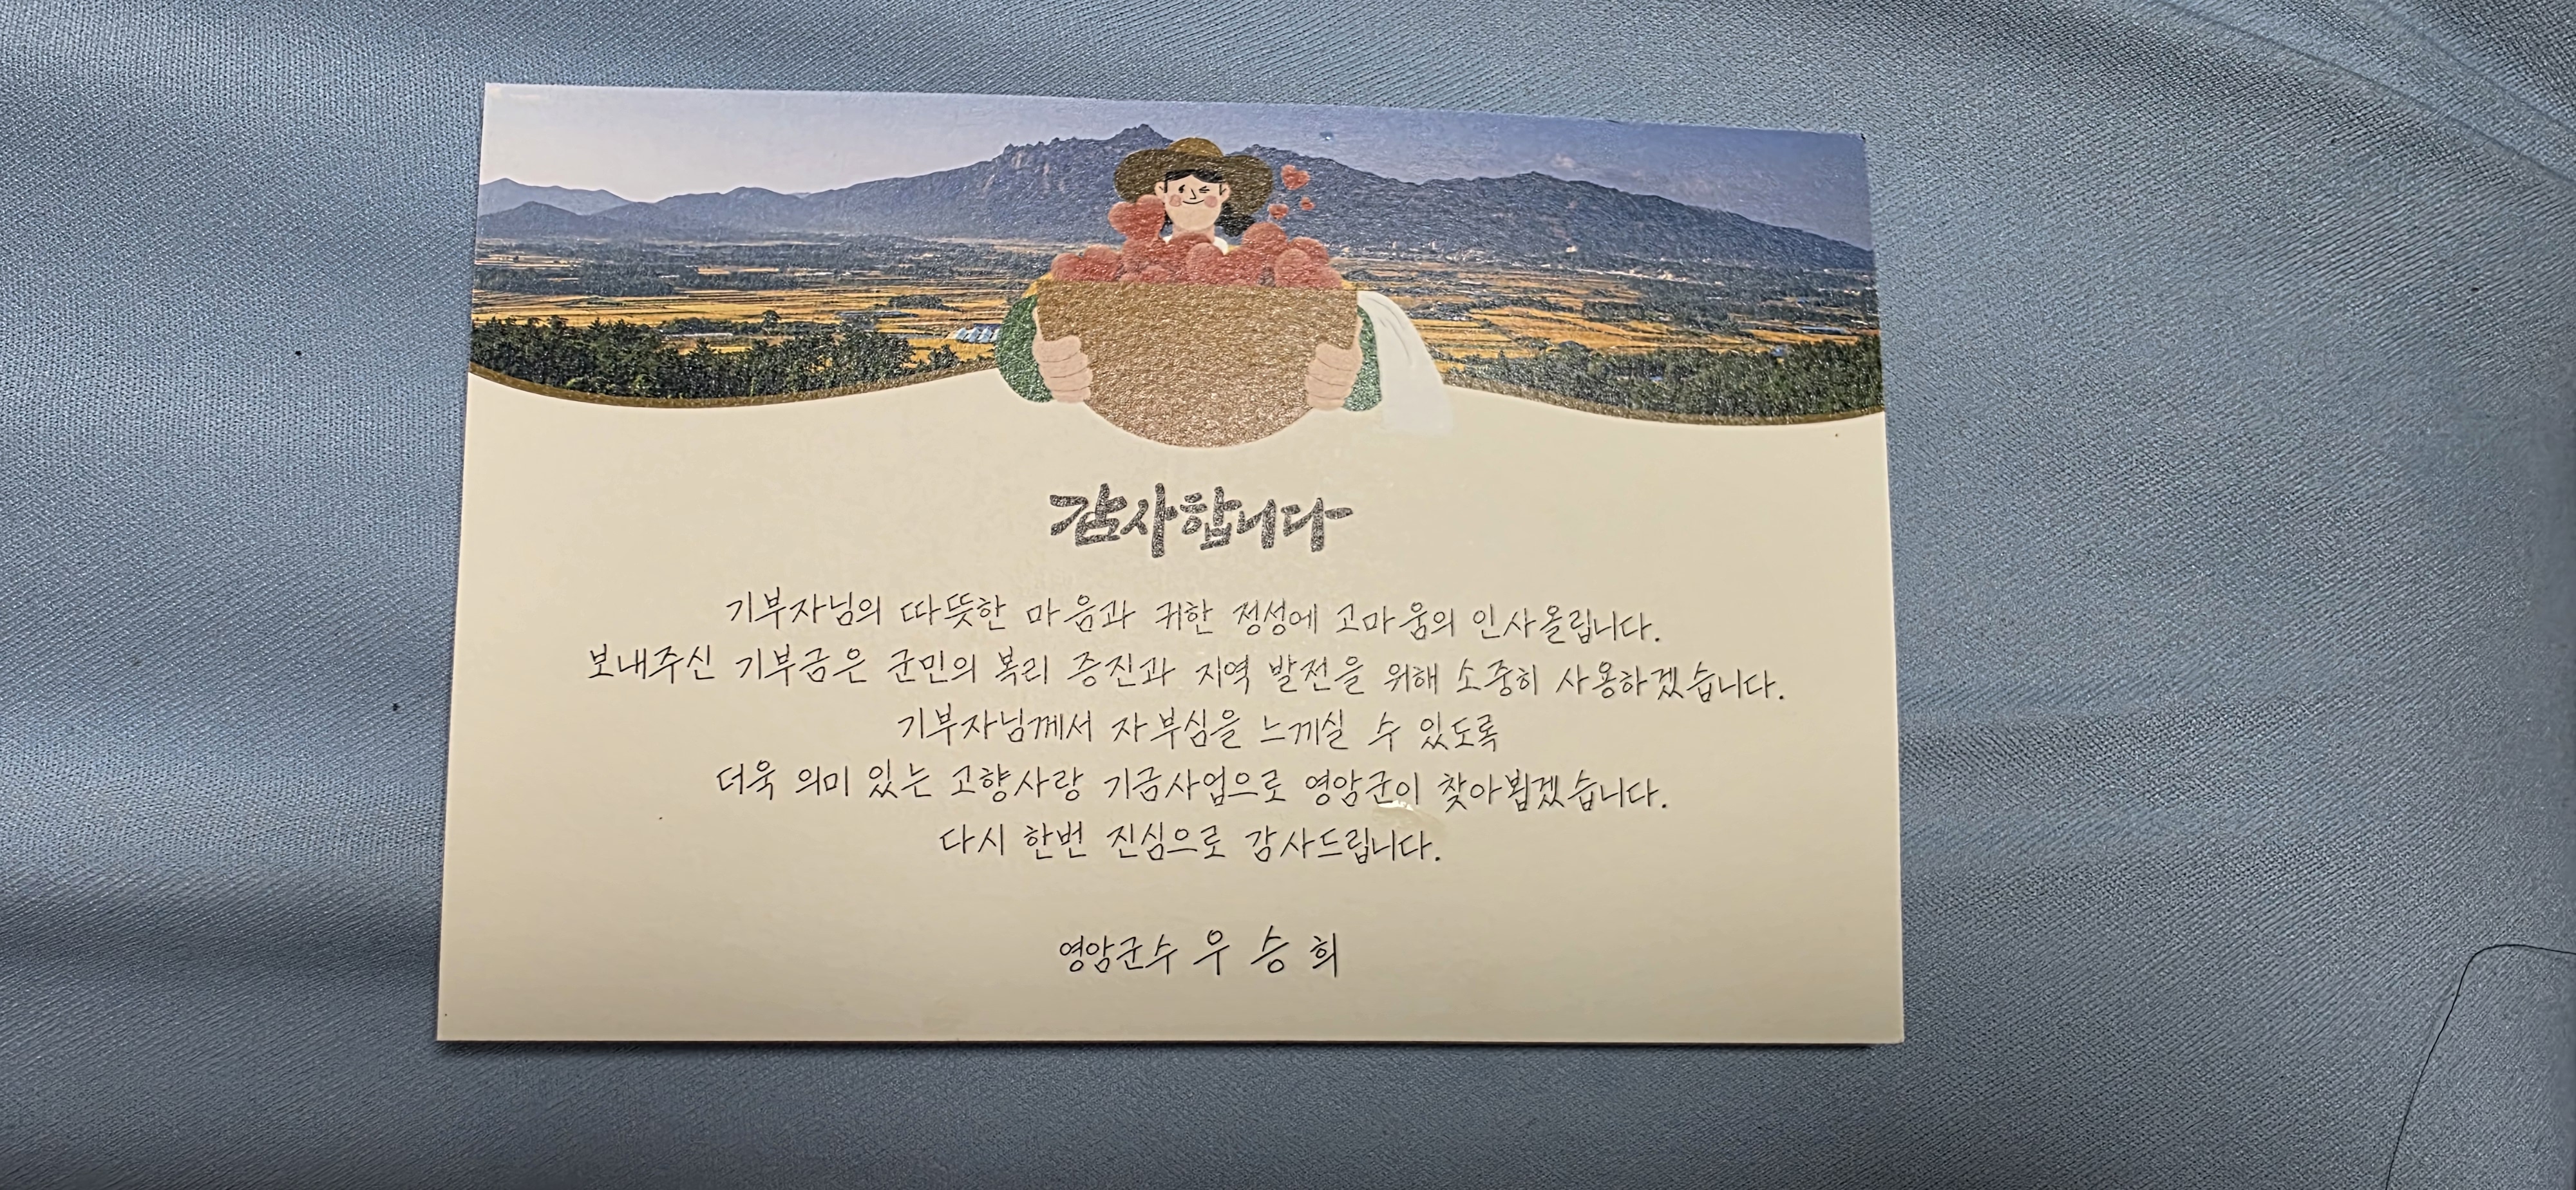 감사합니다
기부자님의 따뜻한 마음과 귀한 정성에 고마움의 인사올립니다.
보내주신 기부금은 군민의 복리 증진과 지역 발전을 위해 소중히 사용하겠습니다.
기부자님께서 자부심을 느끼실 수 있도록
더욱 의미 있는 고향사랑 기금사업으로 영암군이 찾아뵙겠습니다.
다시 한번 진심으로 감사드립니다.
영암군수 우 승 희